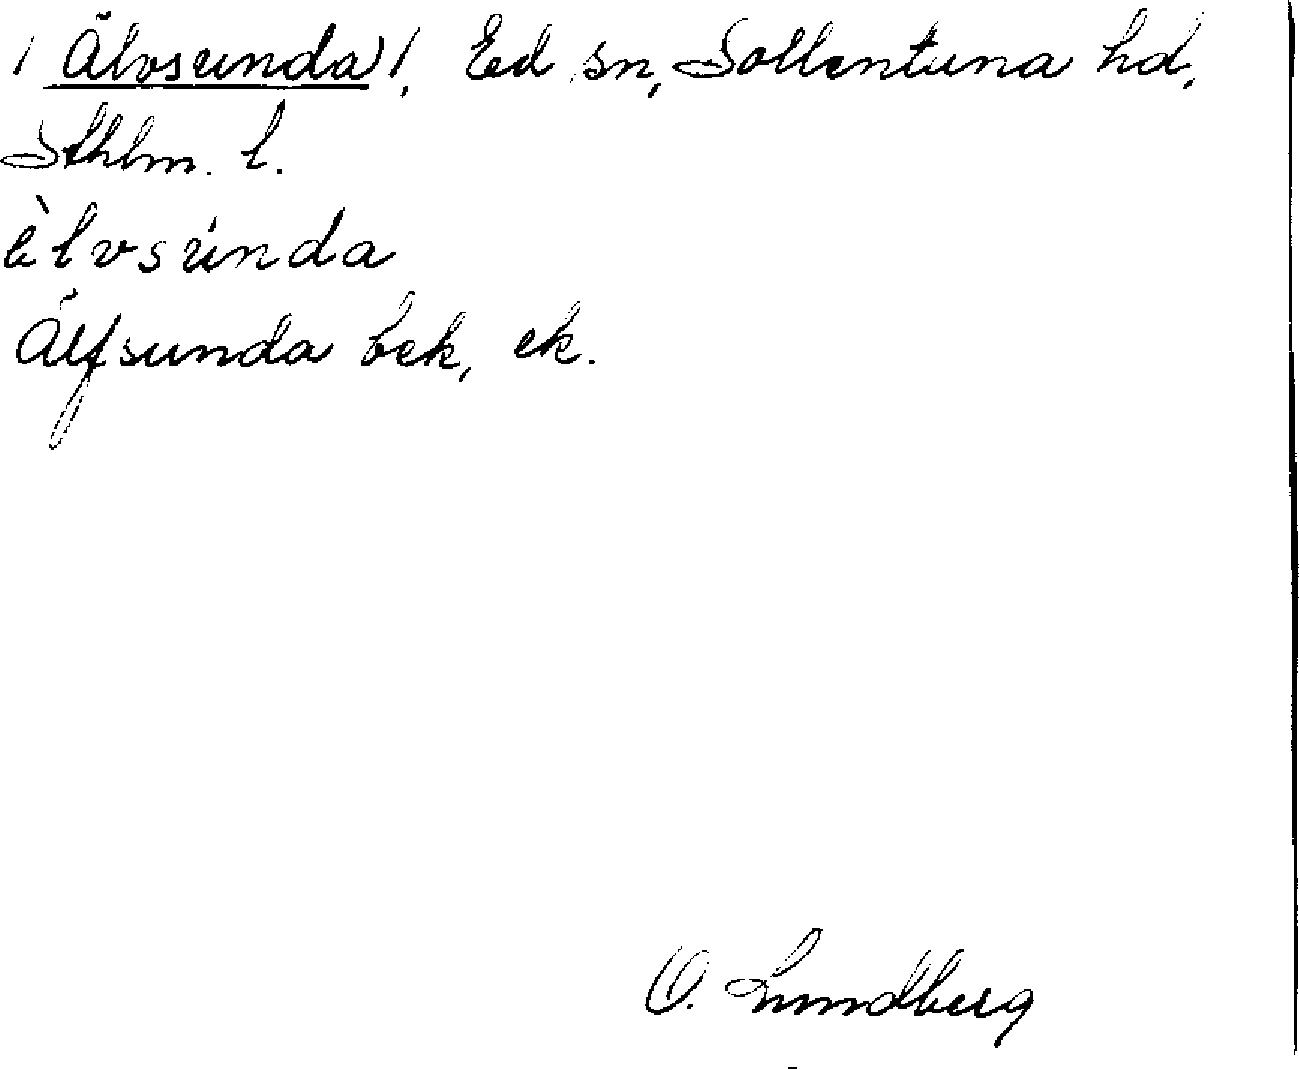 / Älvsunda /, Ed sn, Sollentuna hd,
Sthlm. l.
èlvsúnda
Älfsunda bek, ek.
O. Lundberg